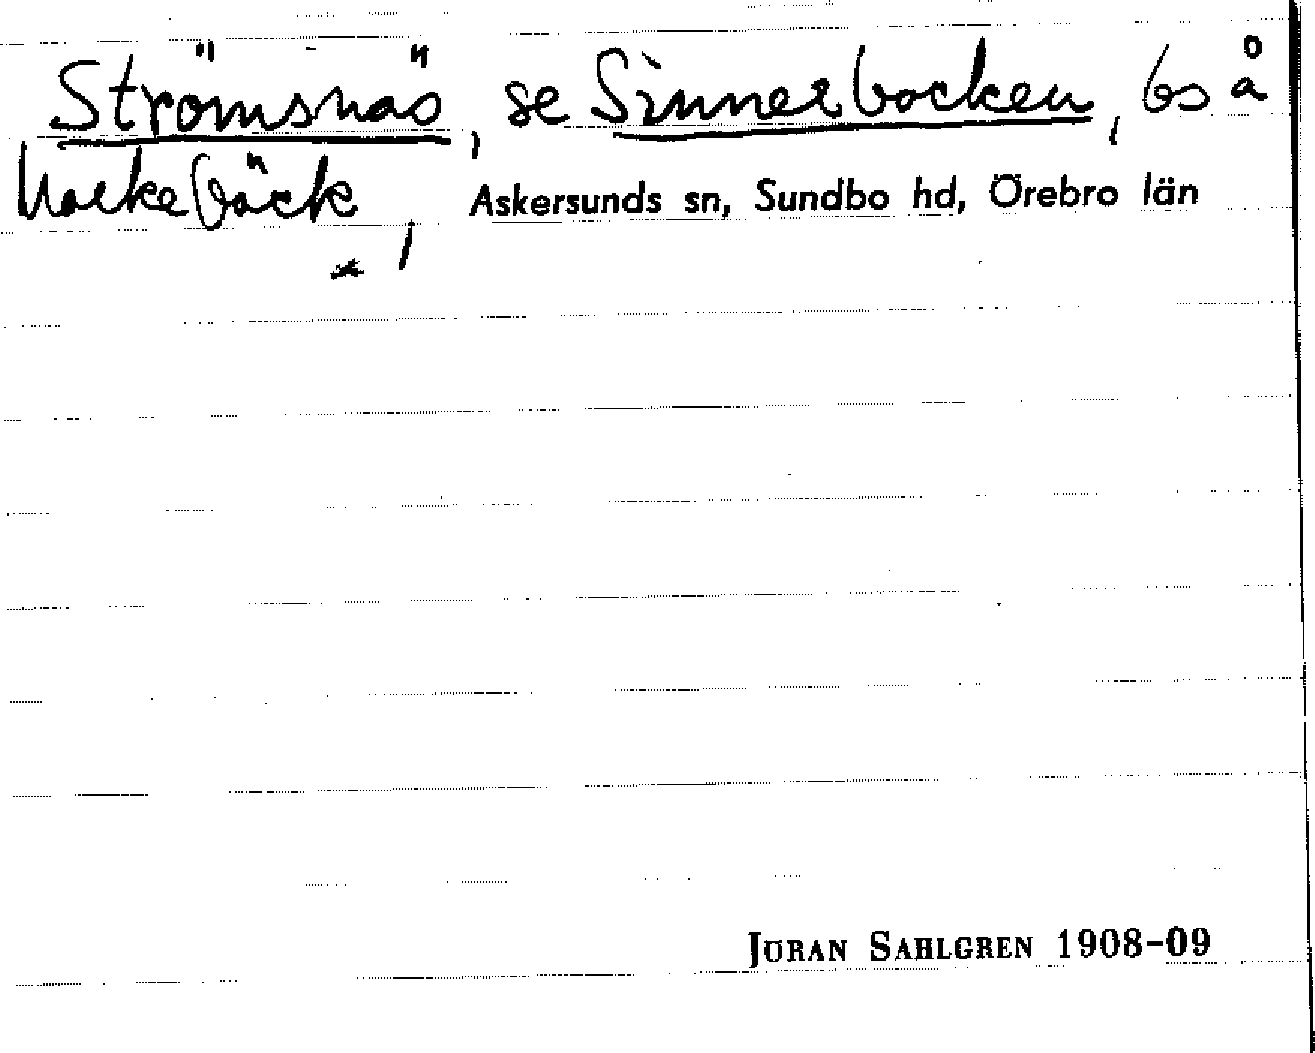 Strömsnäs, se Sinnerbocken, bs å
Norkebäck, Askersunds sn, Sundbo hd, Örebro län
JÖRAN SAHLGREN 1908-09